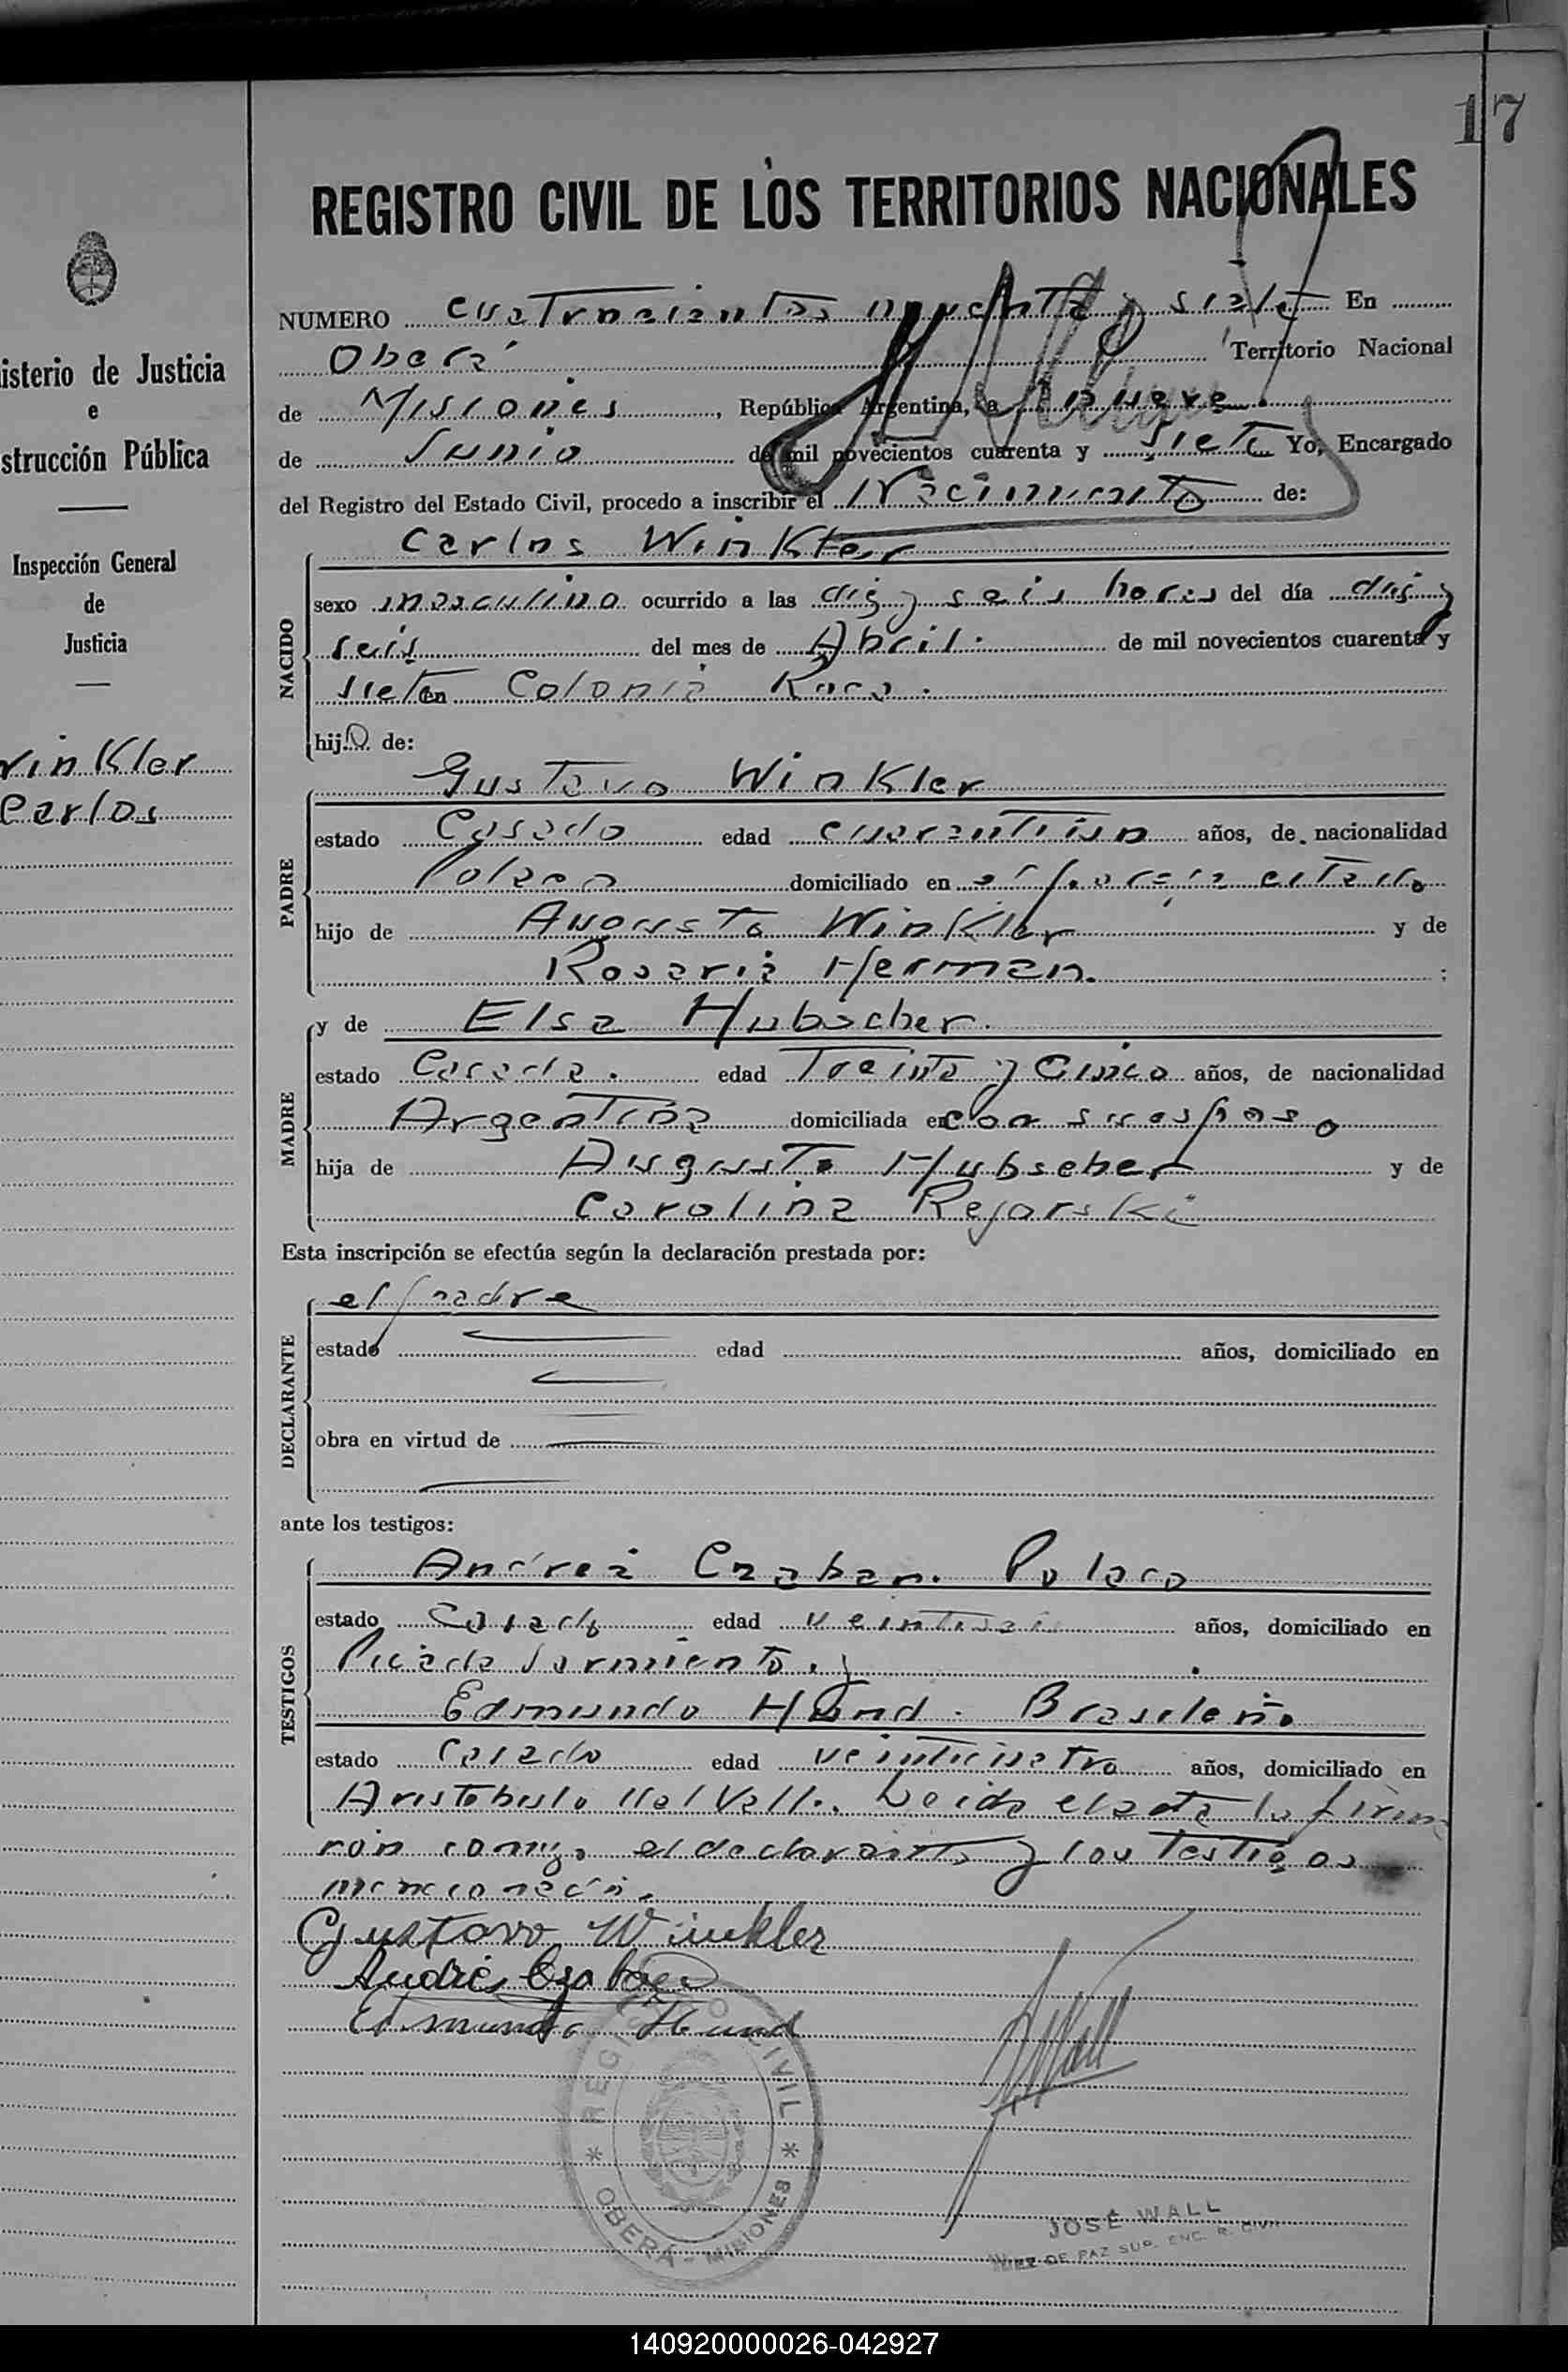 17
REGISTRO CIVIL DE LOS TERRITORIOS NACIONALES
NUMERO cuatrocientos noventa y siete En
Oberá Territorio Nacional
de Misiones, República Argentina, a nueve
de Junio de mil novecientos cuarenta y siete Yo, Encargado
del Registro del Estado Civil, procedo a inscribir el Nacimiento de:
NACIDO
Carlos Winkler
sexo masculino ocurrido a las diez y seis horas del día diez y
seis del mes de Abril de mil novecientos cuarenta y
siete en Colonia
hijo de:
PADRE
Gustavo Winkler
estado Casado edad años, de nacionalidad
Polaca domiciliado en el paraje citado
hijo de Augusto Winkler y de
Rosaria Herman.
MADRE
y de Elsa Hubscher.
estado Casada. edad Treinta y Cinco años, de nacionalidad
Argentina domiciliada en con su esposo
hija de Augusto Hubscher y de
Carolina Rejarski
Esta inscripción se efectúa según la declaración prestada por:
DECLARANTE
el padre
estado edad años, domiciliado en
obra en virtud de
ante los testigos:
TESTIGOS
Andrés Czaban. Polaco
estado Casado edad años, domiciliado en
Picada Sarmiento. y
Edmundo Hund. Brasileño
estado Casado edad veinticuatro años, domiciliado en
Aristobulo del Valle. Leida el acta la firma
ron conmigo el declarante y los Testigos
mencionados.
Gustavo Winkler
Andrés Czaban
Edmundo Hund
Wall
REGISTRO CIVIL
* OBERÁ - MISIONES *
JOSÉ WALL
JUEZ DE PAZ SUP. ENC. R. CIVIL
isterio de Justicia
e
strucción Pública
Inspección General
de
Justicia
Winkler
Carlos
140920000026-042927